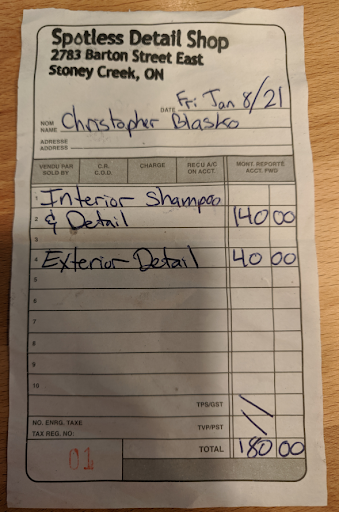 Spotless Detail Shop
2783 Barton Street East
Stoney Creek, ON
DATE Fri Jan 8/21
NOM
NAME Christopher Blasko
ADRESSE
ADDRESS
VENDU PAR SOLD BY C.R. C.O.D. CHARGE RECU A/C ON ACCT. MONT. REPORTÉ ACCT. FWD
1 Interior Shampoo
2 & Detail 140 00
3
4 Exterior Detail 40 00
5
6
7
8
9
10
TPS/GST
NO. ENRG. TAXE TVP/PST
TAX REG. NO:
01 TOTAL 180 00